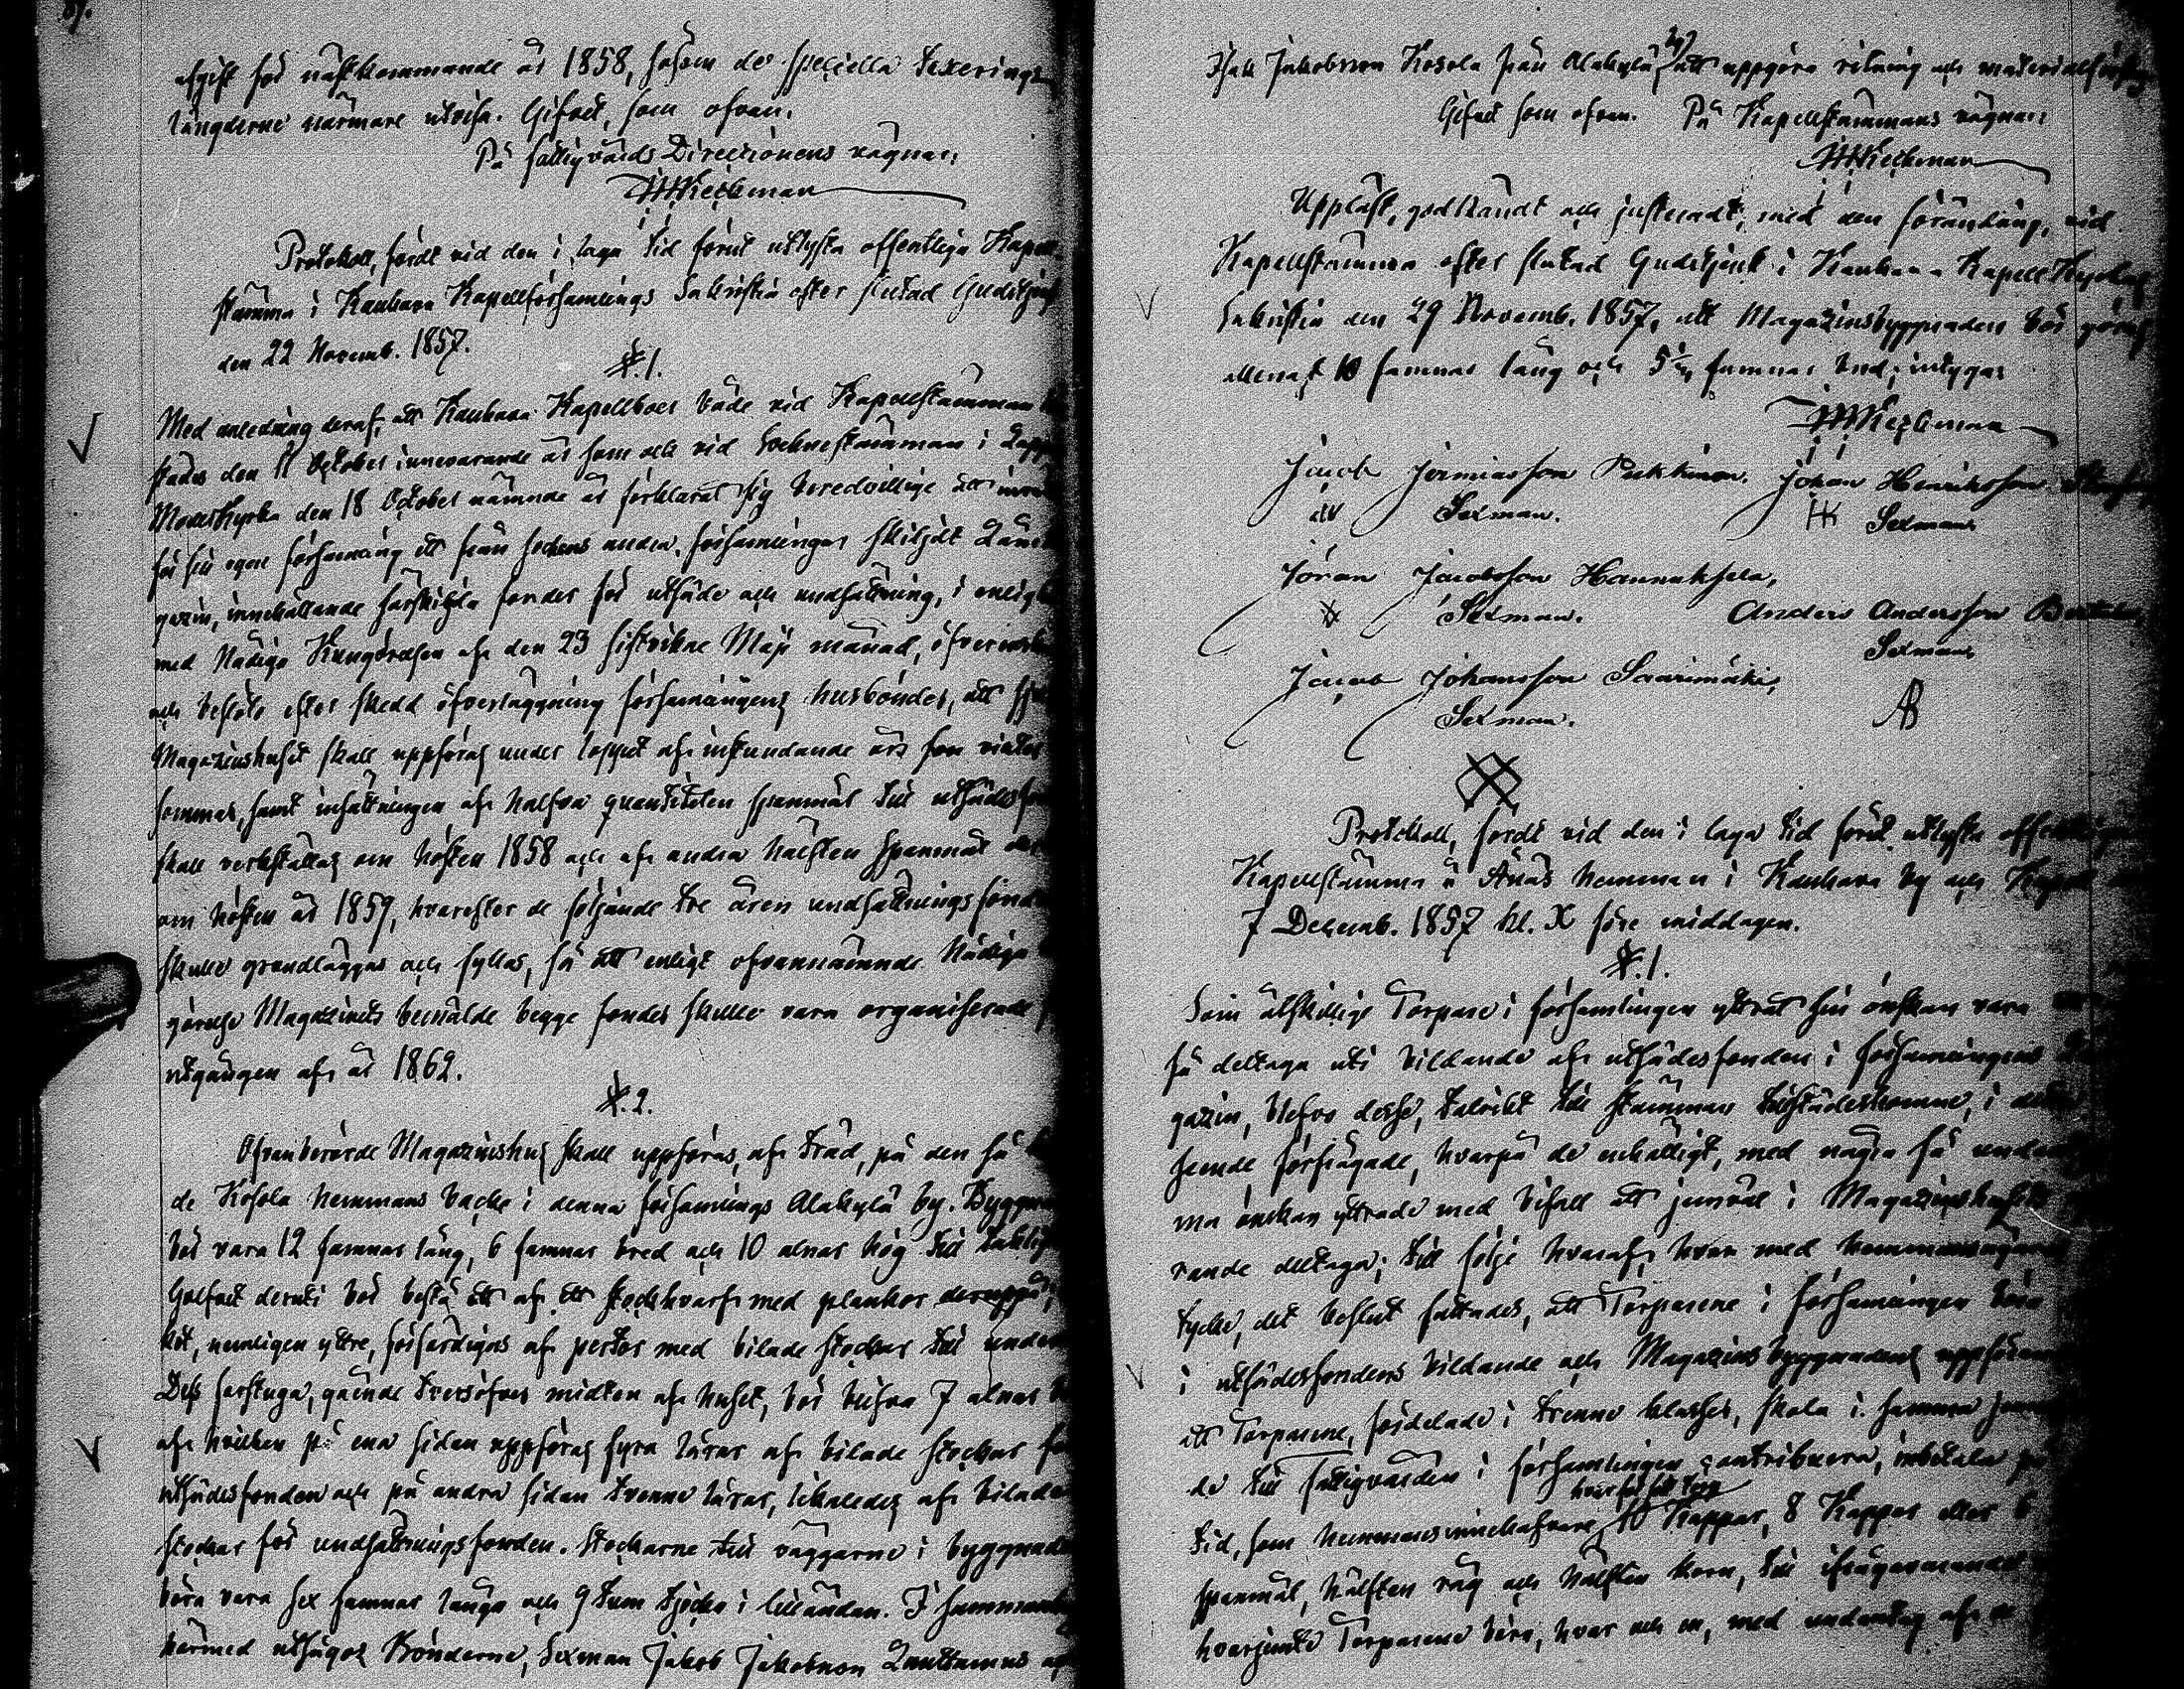 afgift för nästkommande år 1858, såsom de speciella Taxerings
längderne närmare utvisa. Gifvet, som ofvan.
På fattigvårds Directionens vägnar:
Protokoll, fördt vid den i laga tid förut utlysta offentliga Kapell
stämma i Kauhava Kapellförsamlings Sakristia efter slutad Gudstjenst
den 22 Novemb. 1857.
§. 1.
Med anledning deraf, att Kauhava Kapellboer både vid Kapellstämman
den 11 October innevarande år som och vid Socknestämman i Lappo
Moderkyrka den 18 October nämnde år förklarat sig beredvillige att
för sin egen församling ett från sockens andra församlingar skiljdt
gazin, innehållande särskilda fonder för utsäde och undsättning, i enlighet
med Nådiga Kungörelsen af den 23 sistvikne Maji månad, öfverenskom
och beslöto efter skedd öfverläggning församlingens husbönder, att
Magazinshuset skall uppföras under loppet af instundande års vinter
sommar, samt insättningen af halfva quantiteten spanmål till utsädesfonden
skall verkställas om hösten 1858 och af andra hälften spanmål
om hösten år 1859, hvarefter de följande tre åren undsättningsfonden
skulle grundläggas och fyllas, så att enligt ofvannämnde Nådiga
görelse Magazinets bemälde begge fonder skulle vara organiserade
utgången af år 1862.
§. 2.
Ofvanberörde Magazinshus skall uppföras, af träd, på den så
de Kosola hemmans backe i denna församlings Alakylä by. Byggnaden
bör vara 12 famnar lång, 6 famnar bred och 10 alnar hög till
Golfvet deruti bör bestå af ett stockhvarf med plankor deruppå,
nemligen yttre, förfärdigas af pertor med bilade stockar till under
Dess farstuga, gående tversöfver midten af huset, bör blifva 7 alnar
af hvilken på ena sidan uppföras fyra lårar af bilade stockar för
utsädesfonden och på andra sidan tvenne lårar, likaledes af bilade
stockar för undsättningsfonden. Stockarne till väggarne i byggnaden
böra vara sex famnar långa och 9 tum tjocka i lilländan. I sammanhang
härmed utsågos Bönderne, Sexman Jakob Jakobsson Lauttamus och
Isak Jakobsson Kosola från Alakylä by att uppgöra ritning och materialförslag
Gifvet som ofvan. På Kapellstämmans vägnar:
Uppläst, godkändt och justeradt, med den förändring, vid
Kapellstämma efter slutad Gudstjenst i Kauhava Kapell Kyrkas
Sakristia den 29 Novemb. 1857, att Magazinsbyggnaden bör göras
allenast 10 famnar lång och 5½ famnar bred; intygar
Jacob Jeremiasson Pukkinen. Johan Henriksson
Sexman. Sexman
Jöran Jacobsson Hannuksela,
Sexman. Anders Andersson
Sexman
Jacob Johansson Saarimäki,
Sexman. AB
Protokoll, fördt vid den i laga tid förut utlysta offentliga
Kapellstämma å Änäs hemman i Kauhava by och Kapell
7 Decemb. 1857 kl. X före middagen.
§. 1.
Som åtskillige Torpare i församlingen yttrat sin önskan vara
få deltaga uti bildande af utsädesfonden i församlingens
gazin, blefvo desse, talrikt till stämman tillstädeskomne, i
seende förfrågade, hvarpå de enhälligt, med några få undantag
ma önskan yttrade med bifall att jemväl i Magazinshusets
rande deltaga; till följe hvaraf, hvar med hemmansägarne
tycke, det beslut fattades, att Torparene i församlingen böra
i utsädesfondens bildande och Magazins byggnadens uppförande
att Torparene, fördelade i trenne klasser, skola i samma
de till fattigvården i församlingen contribuera, inbetala på
hvar för sitt torp
tid, som hemmansinnehafvare 10 Kappar, 8 Kappar eller 6
spanmål, hälften råg och hälften korn, till ifrågavarande
hvarjemte Torparene böra, hvar och en, med undantag af